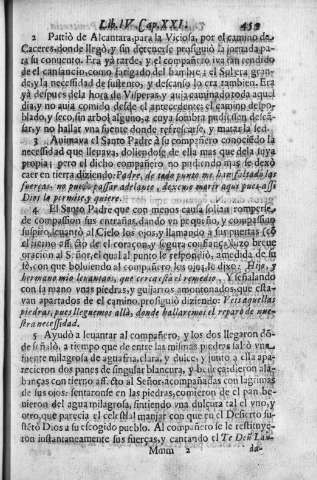 Lib. IV Cap. XXI. 459
2 Partiò de Alcantara, para la Viciosa, por el camino de
Caceres, donde llegò, y sin detenerse prosiguiò la jornada, pa-
ra su conuento. Era yà tarde, y el compañero iva tan rendido
de el cansancio, como fatigado del hambre: el Sol era gran-
de, y la necessidad de sustento, y descanso lo era tambien. Era
yà despues de la hora de Visperas, y auia caminado toda aquel
dia, y no auia comido desde el antecedente: el camino despo-
blado, y seco, sin arbol alguno, a cuya sombra pudiessen descã-
sar, y no hallar vna fuente donde refrescarse, y matar la sed.
3 Animava el Santo Padre à su compañero conocida la
necessidad que llevava, doliendose de ella mas que de la suya
propia; pero el dicho compañero, no pudiendo mas se dexò
caer en tierra diziendo: Padre, de todo punto me han faltado las
fuerças, no puedo passar adelante, dexeme morir aqui pues assi
Dios lo permite, y quiere.
4 El Santo Padre que con menos causa solian romperse
de compassion sus entrañas, dando vn pequeño, y compassivo
suspiro, levantò al Cielo los ojos, y llamando a sus puertas cõ
el intimo afecto de el coraçon, y segura confiança, hizo breue
oracion al Señor, el qual al punto le respondiò, a medida de su
fè, con que boluiendo al compañero los ojos, le dixo: Hijo, y
hermano mio levantaos, que cerca està el remedio. Y señalando
con la mano vnas piedras, y guijarros amontonados, que esta-
van apartados de el camino, prosiguiò diziendo: Veis aquellas
piedras, pues lleguemos allà, donde hallaremos el reparo de nue-
stra necessidad.
5 Ayudò a leuantar al compañero, y los dos llegaron dõ-
de señalò, a tiempo que de entre las mismas piedras saliò vna
fuente milagrosa de agua fria, clara, y dulce, y junto a ella apa-
recieron dos panes de singular blancura, y
banças con tierno afecto al Señor, acompañadas con lagrimas
de sus ojos: sentaronse en las piedras, comieron de el pan, be-
uieron del agua milagrosa, sintiendo vna dulçura tal el vno, y
otro, que parecia el celestial manjar con que en el Desierto sus-
tẽtò Dios a su escogido pueblo. Al compañero se le restituye-
ron instantaneamente sus fuerças, y cantando el Te Deũ Lau-
Mmm 2 da-